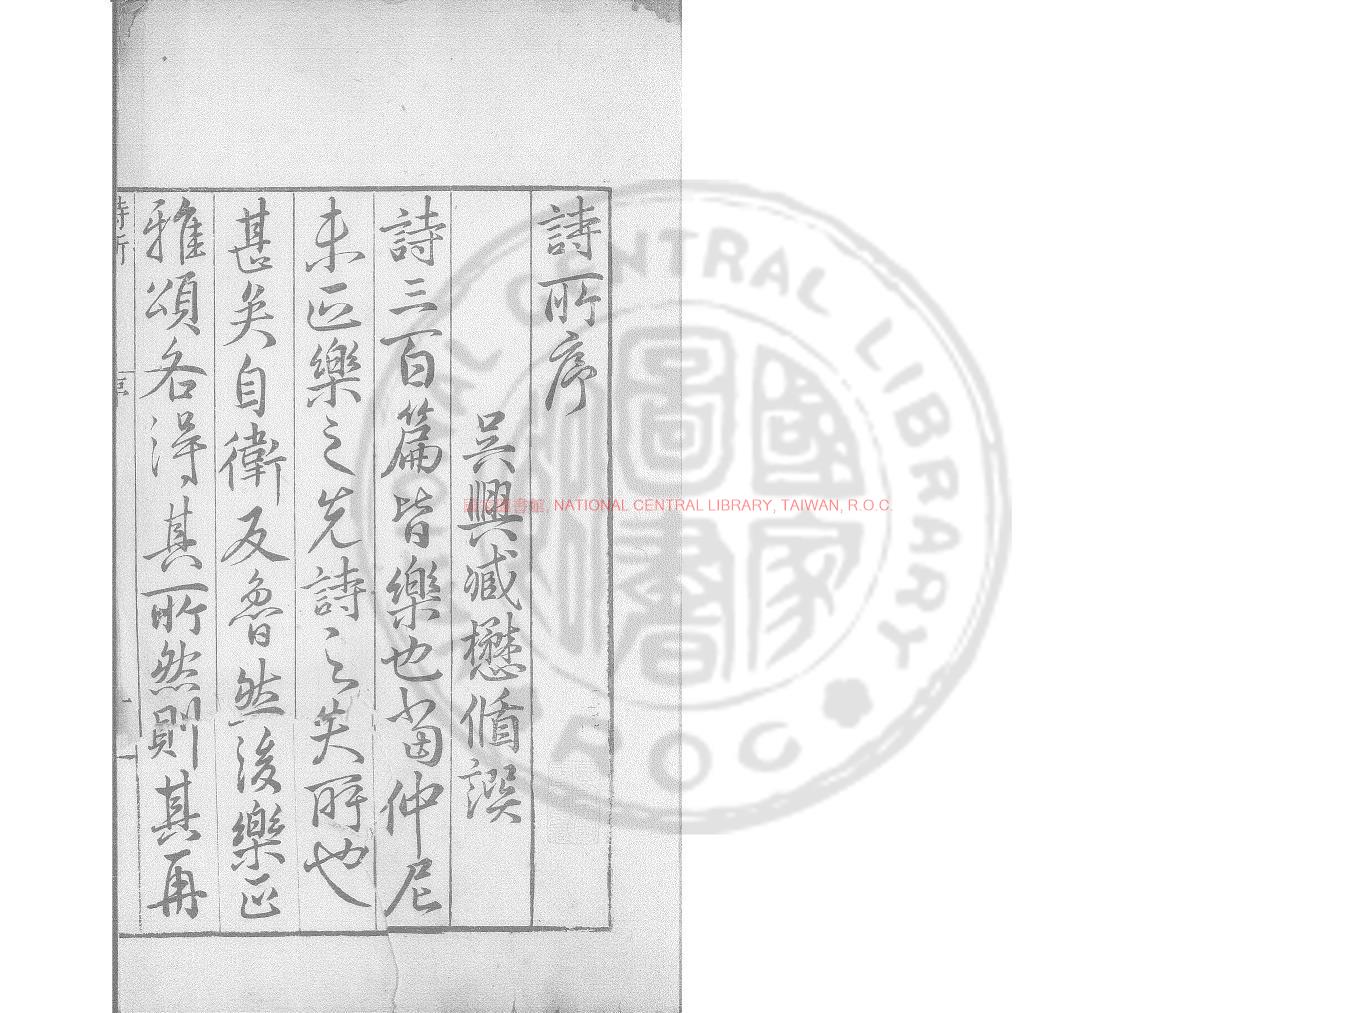 詩所序
吳興臧懋循譔
詩三百篇皆樂也當仲尼
未正樂之先詩之失所也
甚矣自衛反魯然後樂正
雅頌各得其所然則其再
詩所
序
一
國家圖書館, NATIONAL CENTRAL LIBRARY, TAIWAN, R.O.C.
國家圖書
NATIONAL CENTRAL LIBRARY
ROC